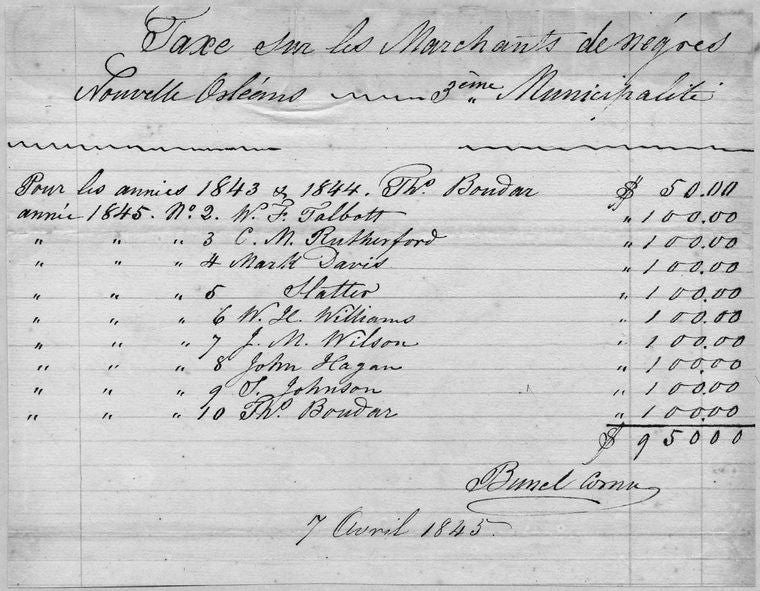 Taxe sur les Marchants de négres
Nouvelle Orléans 3ème Municipalité
Pour les années 1843 & 1844. Ths. Boudar $ 50.00
année 1845. No. 2. W. F. Talbott " 100.00
" " " 3 C. M. Rutherford " 100.00
" " " 4 Mark Davis " 100.00
" " " 5 Slatter " 100.00
" " " 6 W. H. Williams " 100.00
" " " 7 J. M. Wilson " 100.00
" " " 8 John Hagan " 100.00
" " " 9 S. Johnson " 100.00
" " " 10 Ths. Boudar " 100.00
$ 95000
Bunel
7 Avril 1845.